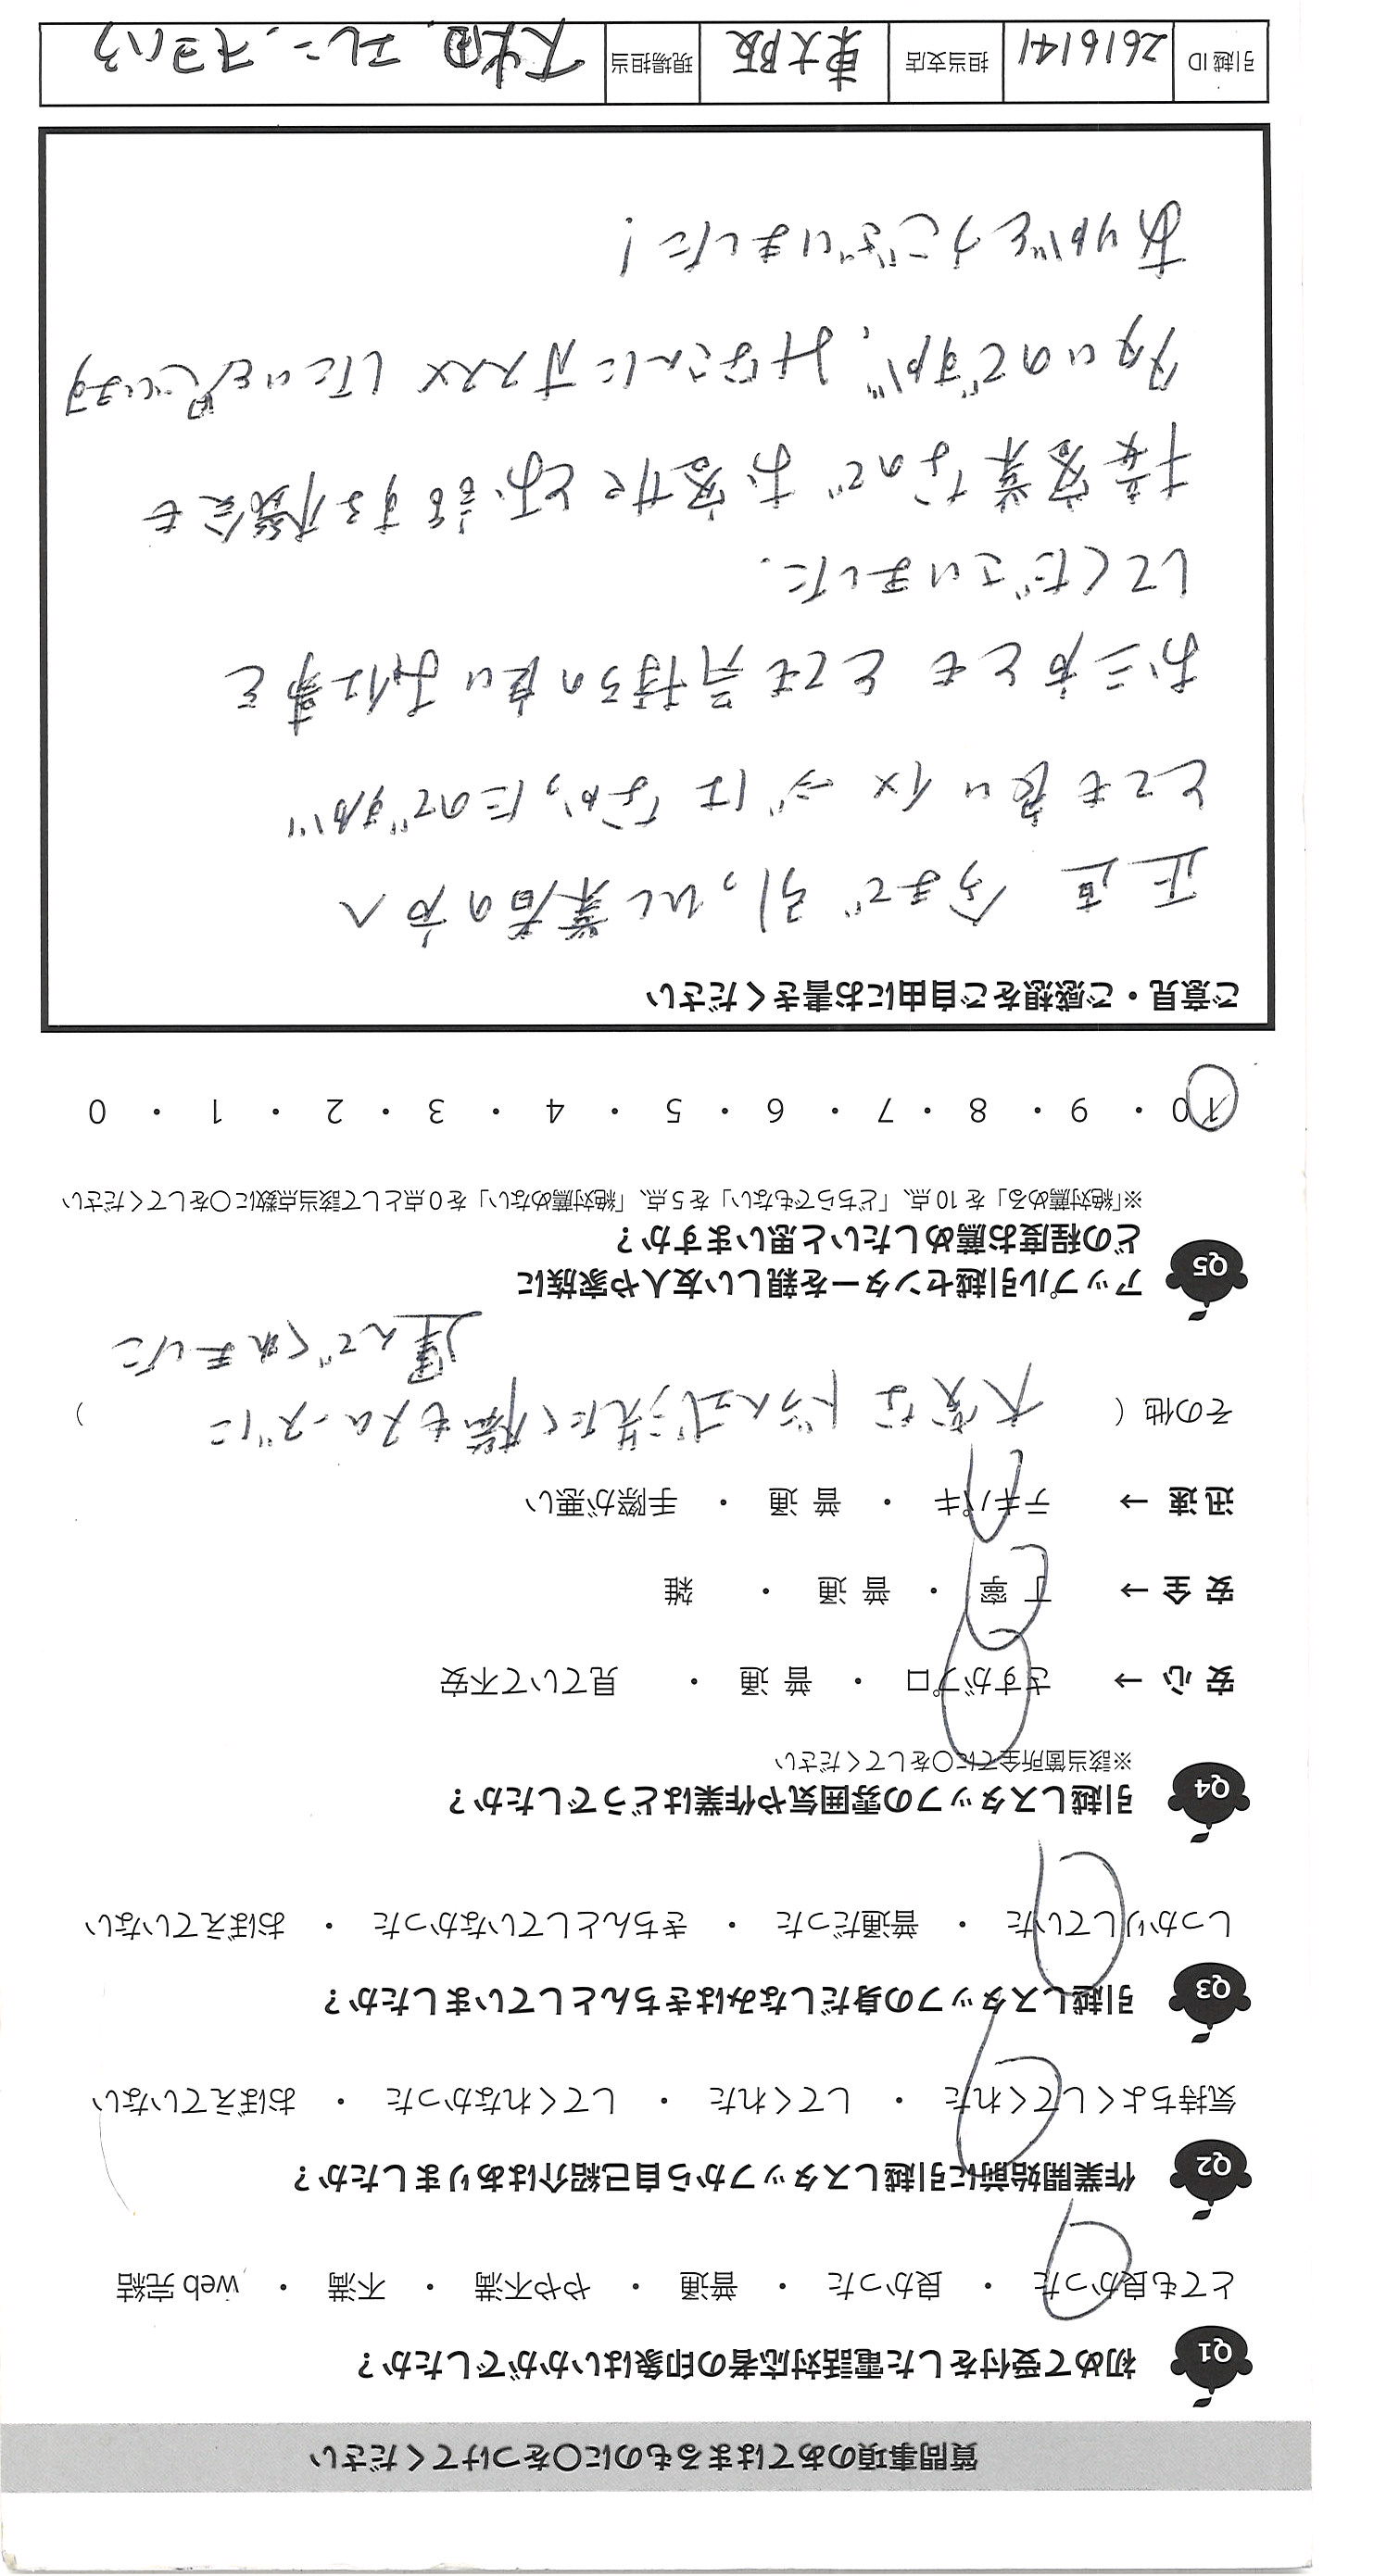 質問事項のあてはまるものに〇をつけてください
Q1 初めて受付をした電話対応者の印象はいかがでしたか？
とても良かった ・ 良かった ・ 普通 ・ やや不満 ・ 不満 ・ web 完結
Q2 作業開始前に引越しスタッフから自己紹介はありましたか？
気持ちよくしてくれた ・ してくれた ・ してくれなかった ・ おぼえていない
Q3 引越しスタッフの身だしなみはきちんとしていましたか？
しっかりしていた ・ 普通だった ・ きちんとしていなかった ・ おぼえていない
Q4 引越しスタッフの雰囲気や作業はどうでしたか？
※該当箇所全てに〇をしてください
安心 → さすがプロ ・ 普通 ・ 見ていて不安
安全 → 丁寧 ・ 普通 ・ 雑
迅速 → テキパキ ・ 普通 ・ 手際が悪い
その他 （ 大変な ドラム式洗たく機もスムーズに ）
運んでくれました
Q5 アップル引越センターを親しい友人や家族に
どの程度お薦めしたいと思いますか？
※「絶対薦める」を 10 点、「どちらでもない」を 5 点、「絶対薦めない」を 0 点として該当点数に〇をしてください
10 ・ 9 ・ 8 ・ 7 ・ 6 ・ 5 ・ 4 ・ 3 ・ 2 ・ 1 ・ 0
ご意見・ご感想をご自由にお書きください
正直 今まで 引っこし業者の方へ
とても良いイメージはなかったのですが
お三方とも とても気持ちの良いお仕事を
してくださいました.
接客業なので お客サマとお話する機会も
多いのですが、みなさんにオススメしたいと思います
ありがとうございました!
引越 ID 2616141 担当支店 東大阪 現場担当